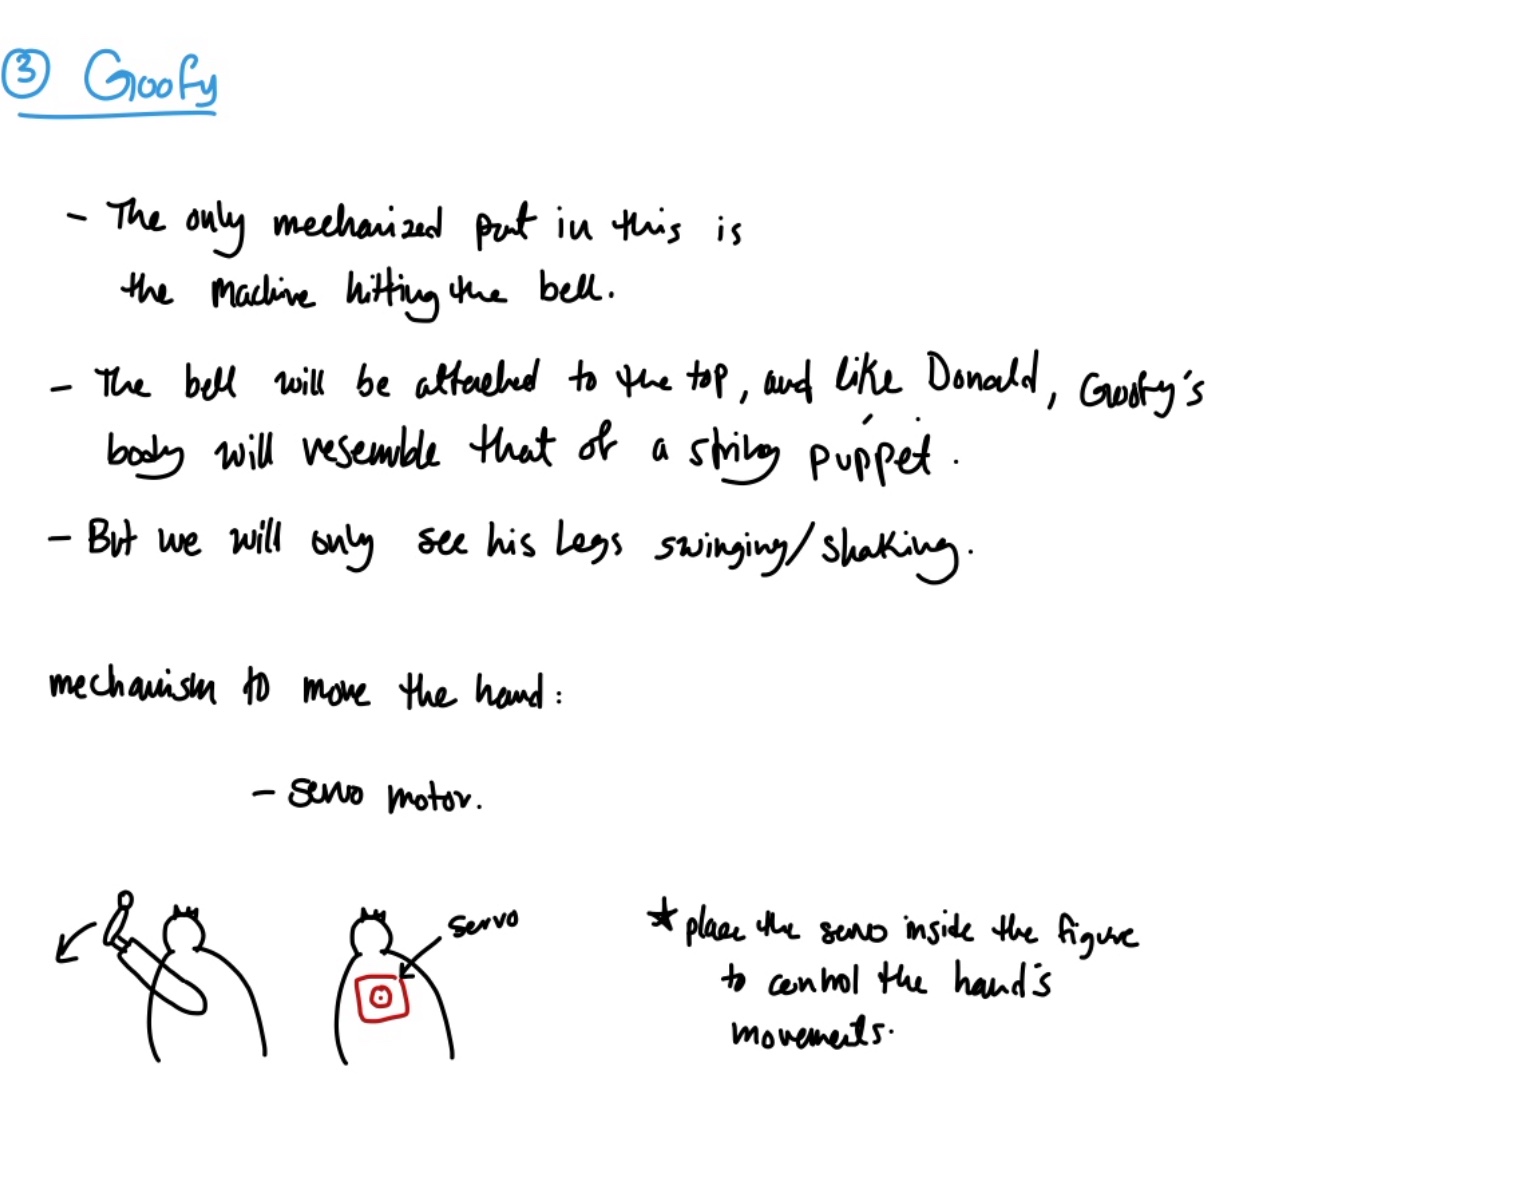 ③ Goofy
- The only mechanized part in this is
the machine hitting the bell.
- The bell will be attached to the top, and like Donald, Goofy's
body will resemble that of a string puppet.
- But we will only see his legs swinging/shaking.
mechanism to move the hand:
- servo motor.
servo
* place the servo inside the figure
to control the hand's
movements.